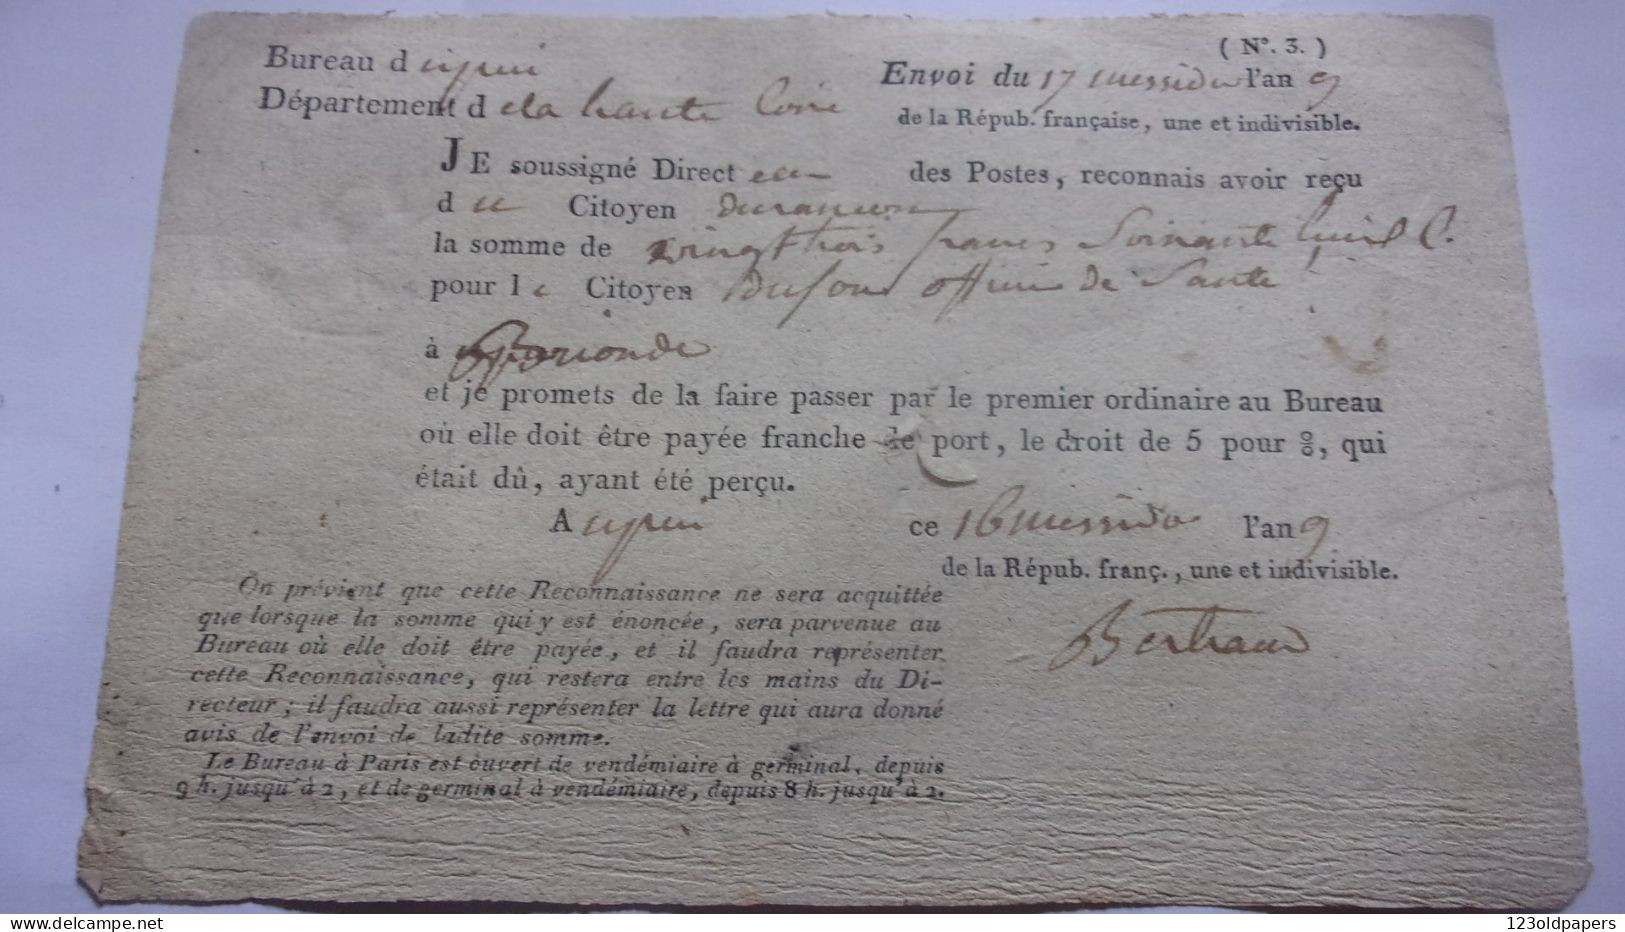 ( N°. 3. )
Bureau d
Envoi du 17 messidor l'an 9
Département d ela haute Loire
de la Répub. française, une et indivisible.
JE soussigné Direct eur des Postes, reconnais avoir reçu
d u Citoyen
la somme de vingt trois francs Soixante huit C.
pour l e Citoyen Dufour officier de Santé
à
et je promets de la faire passer par le premier ordinaire au Bureau
où elle doit être payée franche de port, le droit de 5 pour %, qui
était dû, ayant été perçu.
A ce 16 messidor l'an 9
de la Répub. franç., une et indivisible.
Bertrand
On prévient que cette Reconnaissance ne sera acquittée
que lorsque la somme qui y est énoncée, sera parvenue au
Bureau où elle doit être payée, et il faudra représenter
cette Reconnaissance, qui restera entre les mains du Di-
recteur ; il faudra aussi représenter la lettre qui aura donné
avis de l'envoi de ladite somme.
Le Bureau à Paris est ouvert de vendémiaire à germinal, depuis
9 h. jusqu'à 2, et de germinal à vendémiaire, depuis 8 h. jusqu'à 2.
123oldpapers